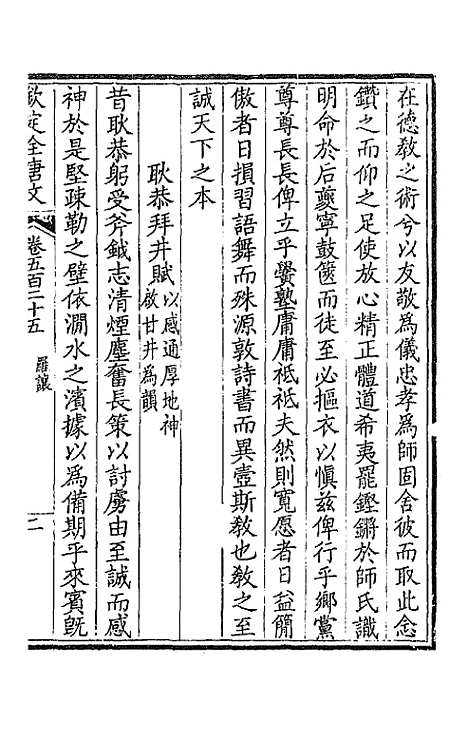 在德教之術兮以友敬為儀忠孝為師固舍彼而取此念
鑽之而仰之足使放心精正體道希夷罷鏗鏘於師氏識
明命於后夔寧鼓篋而徒至必摳衣以慎茲俾行乎鄉黨
尊尊長長俾立乎黌塾庸庸祗祗夫然則寬愿者日益簡
傲者日損習語舞而殊源敦詩書而異壼斯教也教之至
誠天下之本
耿恭拜井賦以感通厚地神啟甘井為韻
昔耿恭躬受斧鉞志清煙塵奮長策以討虜由至誠而感
神於是堅疎勒之壁依澗水之濱據以為備期乎來賓既
欽定全唐文
卷五百二十五
羅讓
二